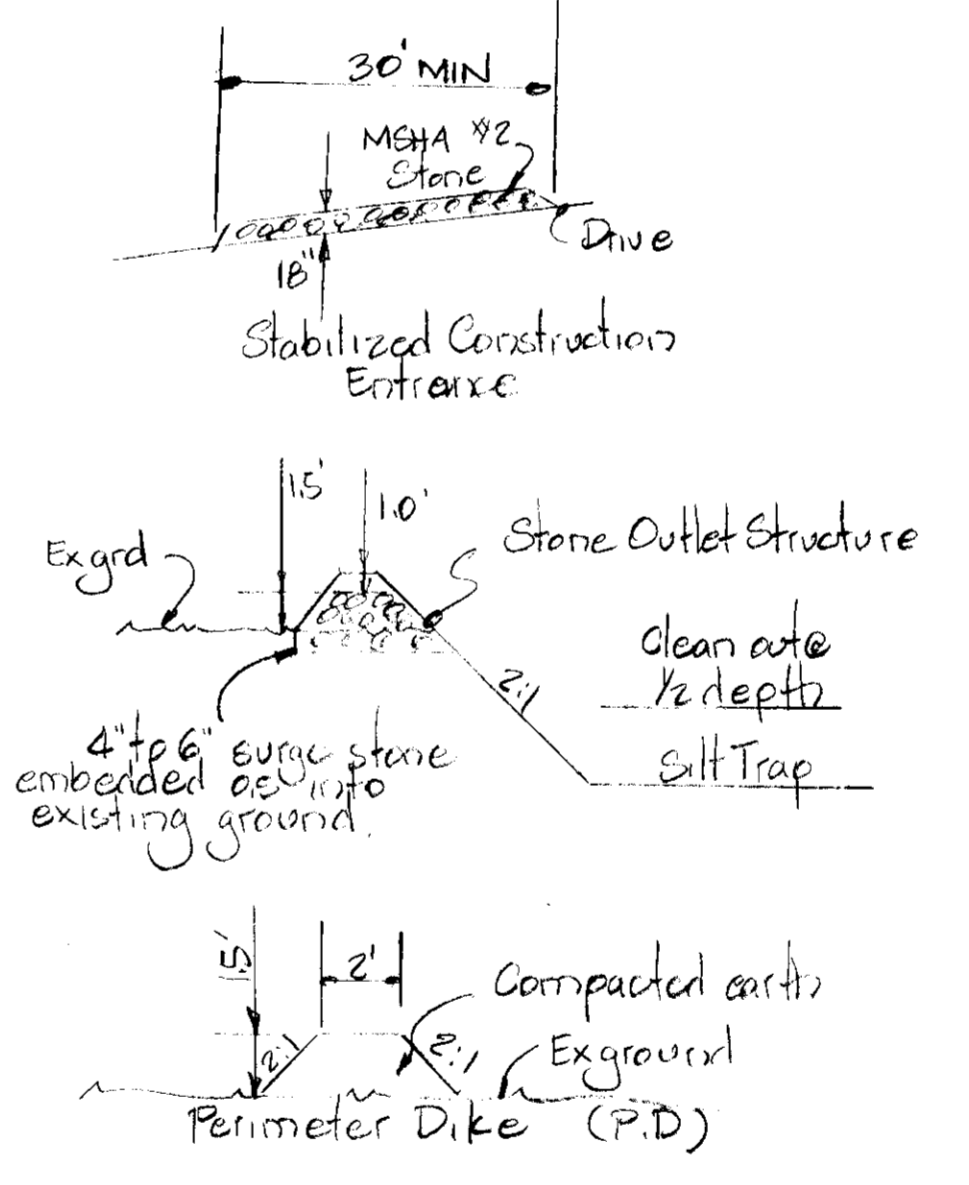 30' MIN
MSHA #2
Stone
Drive
18"
Stabilized Construction
Entrance
1.5'
1.0'
Ex grd
Stone Outlet Structure
Clean out @
1/2 depth
2:1
Silt Trap
4" to 6" surge stone
embedded 0.5' into
existing ground.
1.5'
2'
Compacted earth
2:1
2:1
Ex ground
Perimeter Dike (P.D)